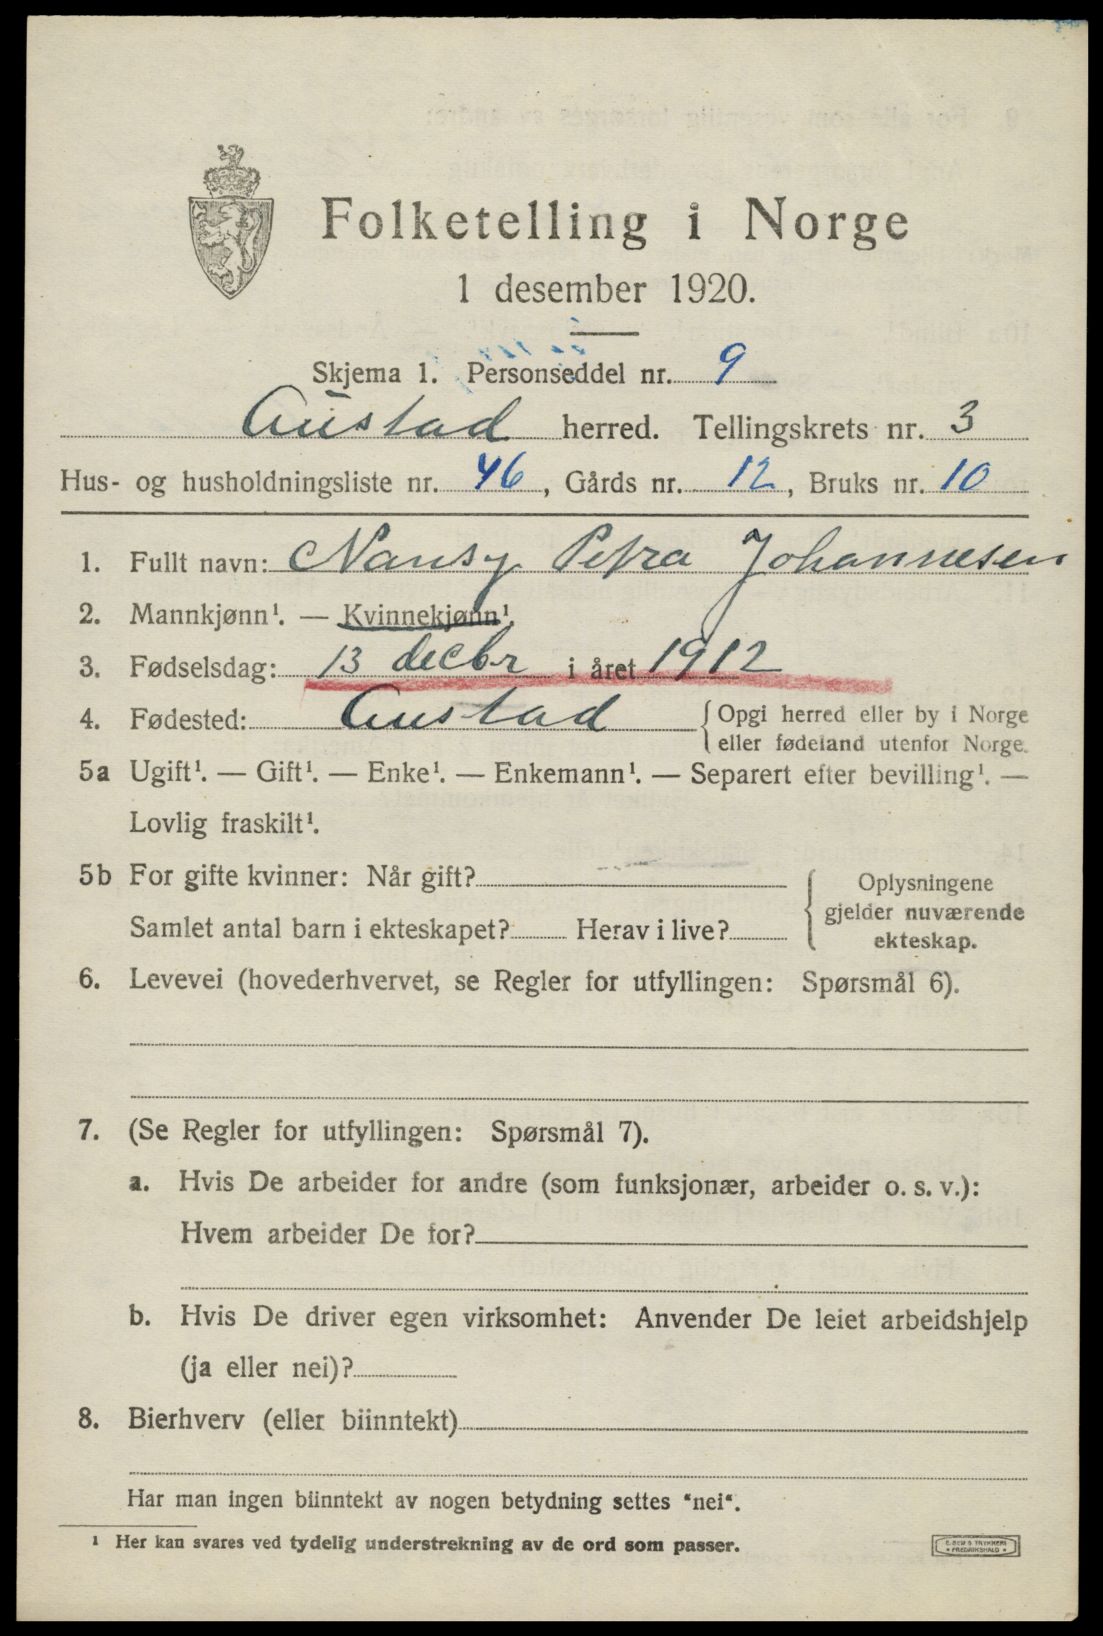 Folketelling i Norge
1 desember 1920.
Skjema 1. Personseddel nr. 9
Austad herred. Tellingskrets nr. 3
Hus- og husholdningsliste nr. 46, Gårds nr. 12, Bruks nr. 10
1. Fullt navn: Nansy Petra Johannesen
2. Mannkjønn¹. — Kvinnekjønn¹.
3. Fødselsdag: 13 decbr i året 1912
4. Fødested: Austad { Opgi herred eller by i Norge
eller fødeland utenfor Norge.
5a Ugift¹. — Gift¹. — Enke¹. — Enkemann¹. — Separert efter bevilling¹. —
Lovlig fraskilt¹.
5b For gifte kvinner: Når gift?
Samlet antal barn i ekteskapet? Herav i live?
{ Oplysningene
gjelder nuværende
ekteskap.
6. Levevei (hovederhvervet, se Regler for utfyllingen: Spørsmål 6).
7. (Se Regler for utfyllingen: Spørsmål 7).
a. Hvis De arbeider for andre (som funksjonær, arbeider o. s. v.):
Hvem arbeider De for?
b. Hvis De driver egen virksomhet: Anvender De leiet arbeidshjelp
(ja eller nei)?
8. Bierhverv (eller biinntekt)
Har man ingen biinntekt av nogen betydning settes "nei".
¹ Her kan svares ved tydelig understrekning av de ord som passer.